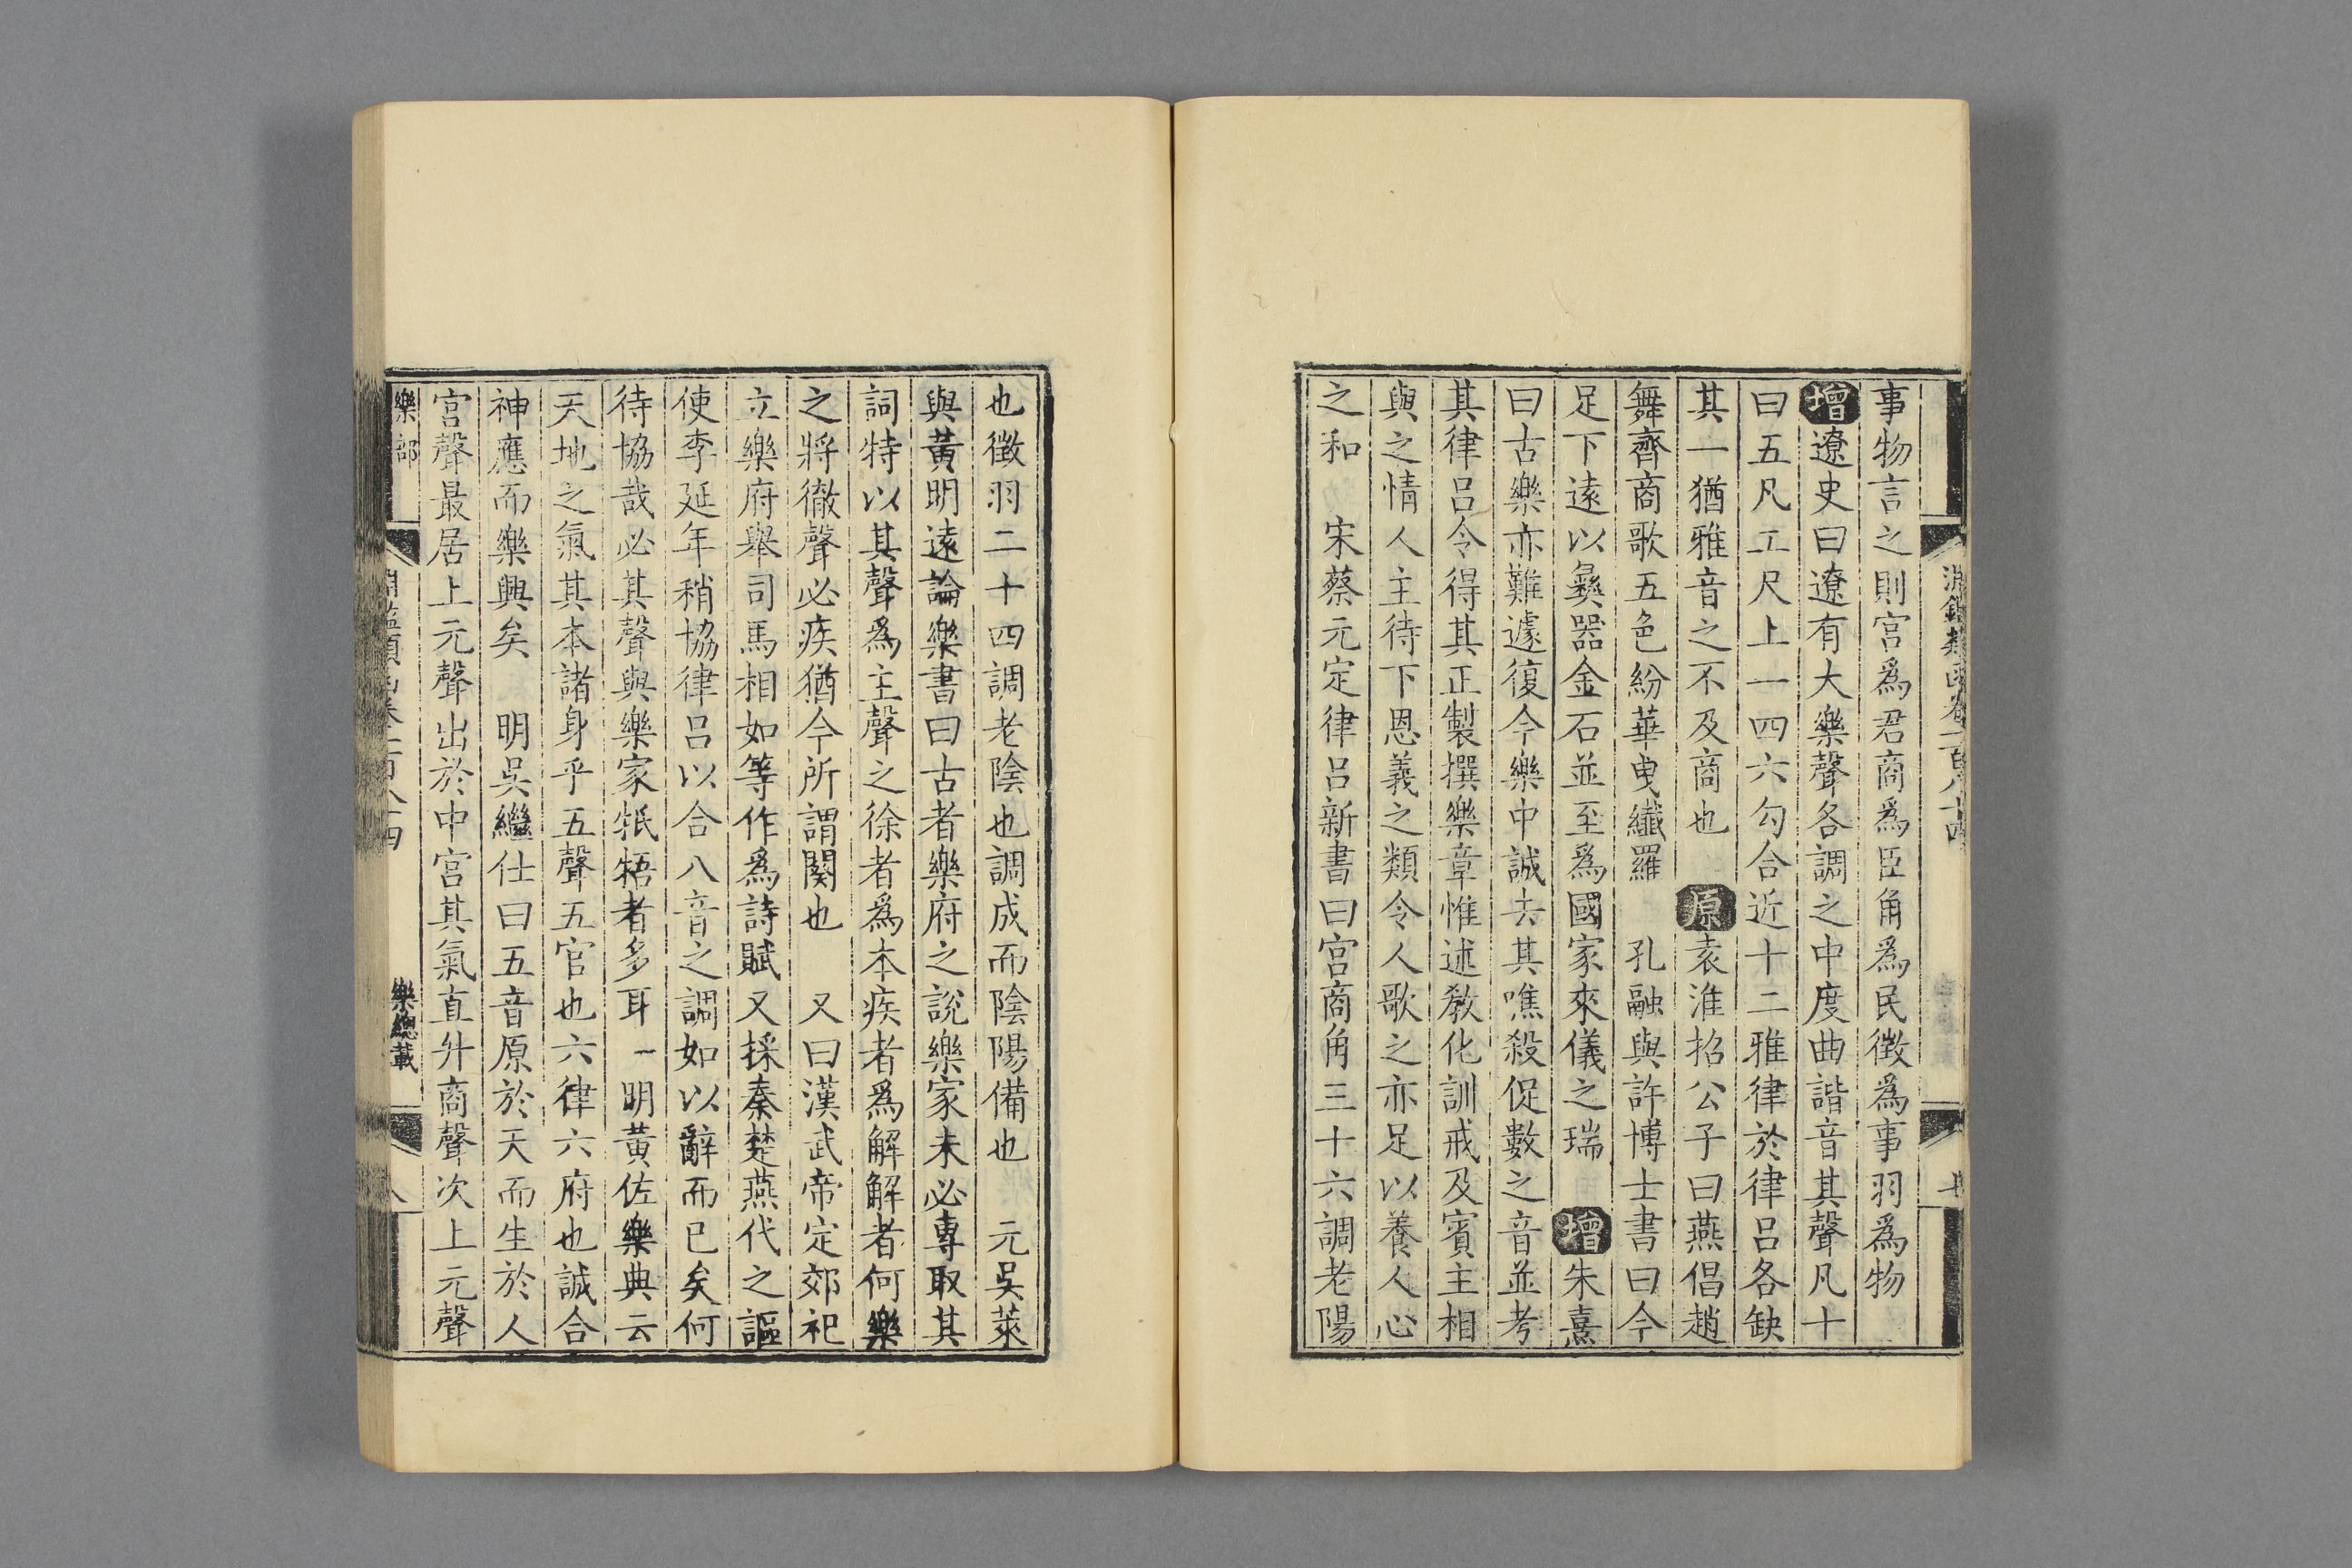 事物言之則宫爲君商爲臣角爲民徴爲事羽爲物
增遼史曰遼有大樂聲各調之中度曲諧音其聲凡十
曰五凡工尺上一四六勾合近十二雅律於律吕各缺
其一猶雅音之不及商也 原袁淮招公子曰燕倡趙
舞齊商歌五色紛華曳纖羅 孔融與許博士書曰今
足下遠以彝器金石並至爲國家來儀之瑞 增朱熹
曰古樂亦難遽復今樂中誠去其噍殺促數之音並考
其律吕令得其正製撰樂章惟述教化訓戒及賓主相
與之情人主待下恩義之類令人歌之亦足以養人心
之和 宋蔡元定律吕新書曰宫商角三十六調老陽
也徴羽二十四調老陰也調成而陰陽備也 元吳萊
與黃明遠論樂書曰古者樂府之說樂家未必專取其
詞特以其聲爲主聲之徐者爲本疾者爲解解者何樂
之將徹聲必疾猶今所謂闋也 又曰漢武帝定郊祀
立樂府舉司馬相如等作爲詩賦又採秦楚燕代之謳
使李延年稍協律吕以合八音之調如以辭而已矣何
待協哉必其聲與樂家牴牾者多耳 明黃佐樂典云
天地之氣其本諸身乎五聲五官也六律六府也誠合
神應而樂興矣 明吳繼仕曰五音原於天而生於人
宫聲最居上元聲出於中宫其氣直升商聲次上元聲
樂部
樂總載
八